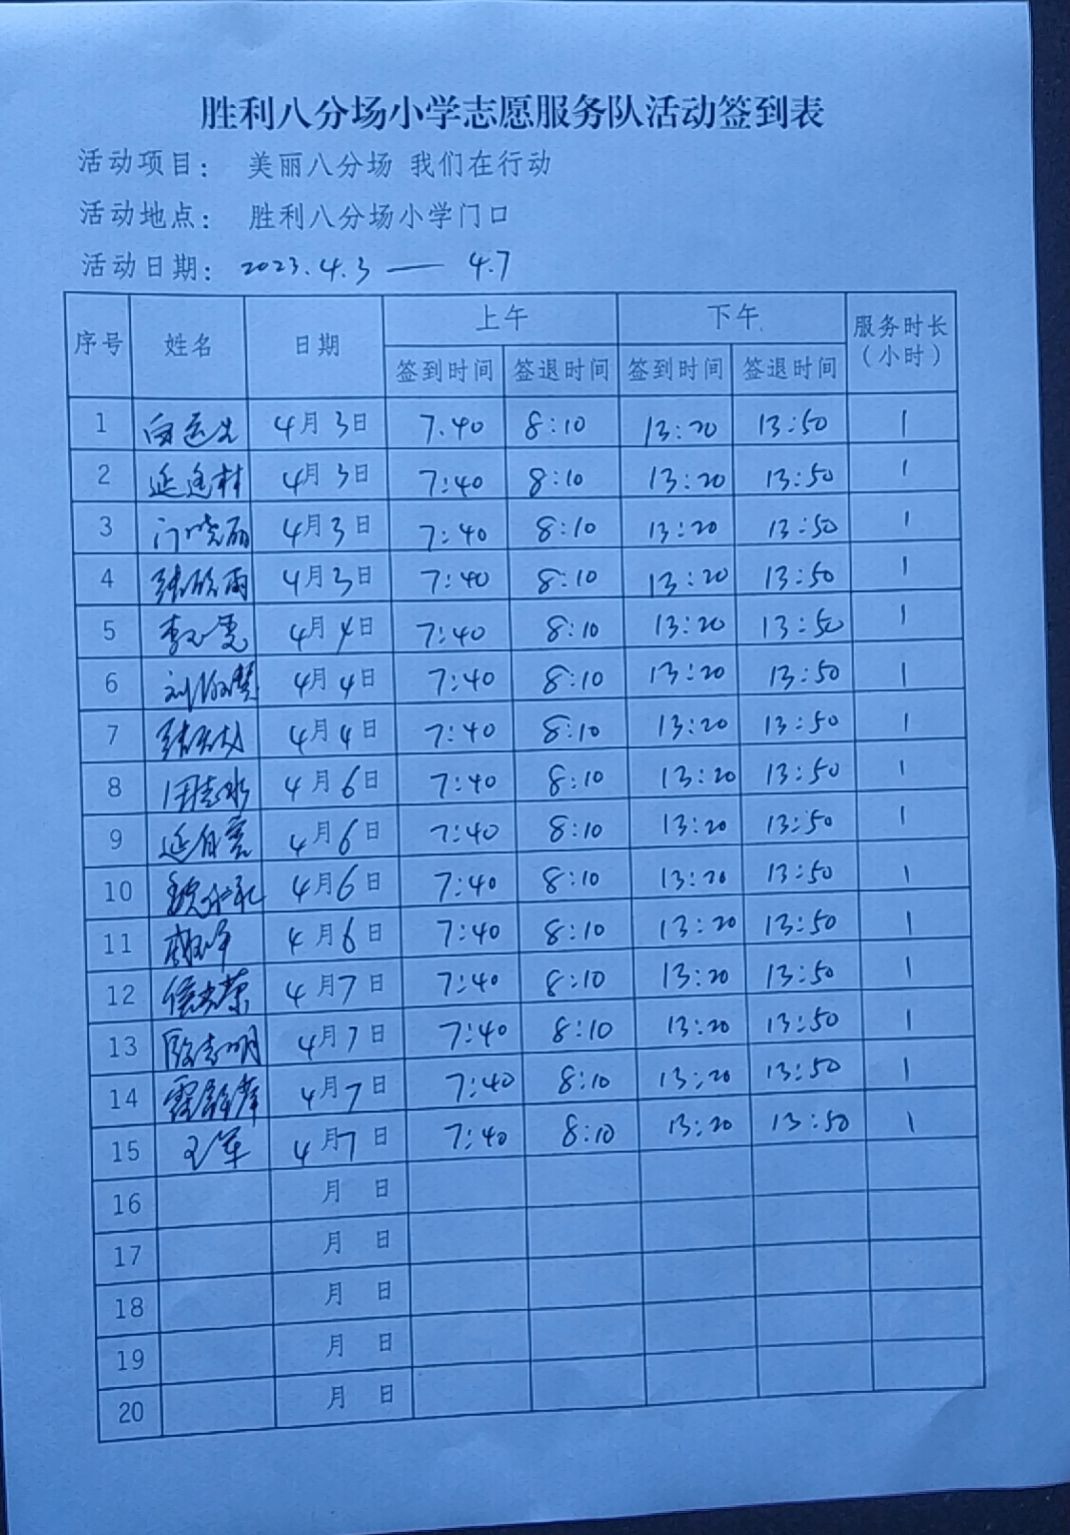 胜利八分场小学志愿服务队活动签到表
活动项目： 美丽八分场 我们在行动
活动地点： 胜利八分场小学门口
活动日期： 2023.4.3 — 4.7
序号 姓名 日期 上午 下午 服务时长（小时）
签到时间 签退时间 签到时间 签退时间
1 4月3日 7.40 8:10 13:20 13:50 1
2 4月3日 7:40 8:10 13:20 13:50 1
3 门晓丽 4月3日 7:40 8:10 13:20 13:50 1
4 张欣雨 4月3日 7:40 8:10 13:20 13:50 1
5 4月4日 7:40 8:10 13:20 13:50 1
6 4月4日 7:40 8:10 13:20 13:50 1
7 4月4日 7:40 8:10 13:20 13:50 1
8 4月6日 7:40 8:10 13:20 13:50 1
9 4月6日 7:40 8:10 13:20 13:50 1
10 4月6日 7:40 8:10 13:20 13:50 1
11 4月6日 7:40 8:10 13:20 13:50 1
12 4月7日 7:40 8:10 13:20 13:50 1
13 4月7日 7:40 8:10 13:20 13:50 1
14 4月7日 7:40 8:10 13:20 13:50 1
15 王军 4月7日 7:40 8:10 13:20 13:50 1
16 月 日
17 月 日
18 月 日
19 月 日
20 月 日